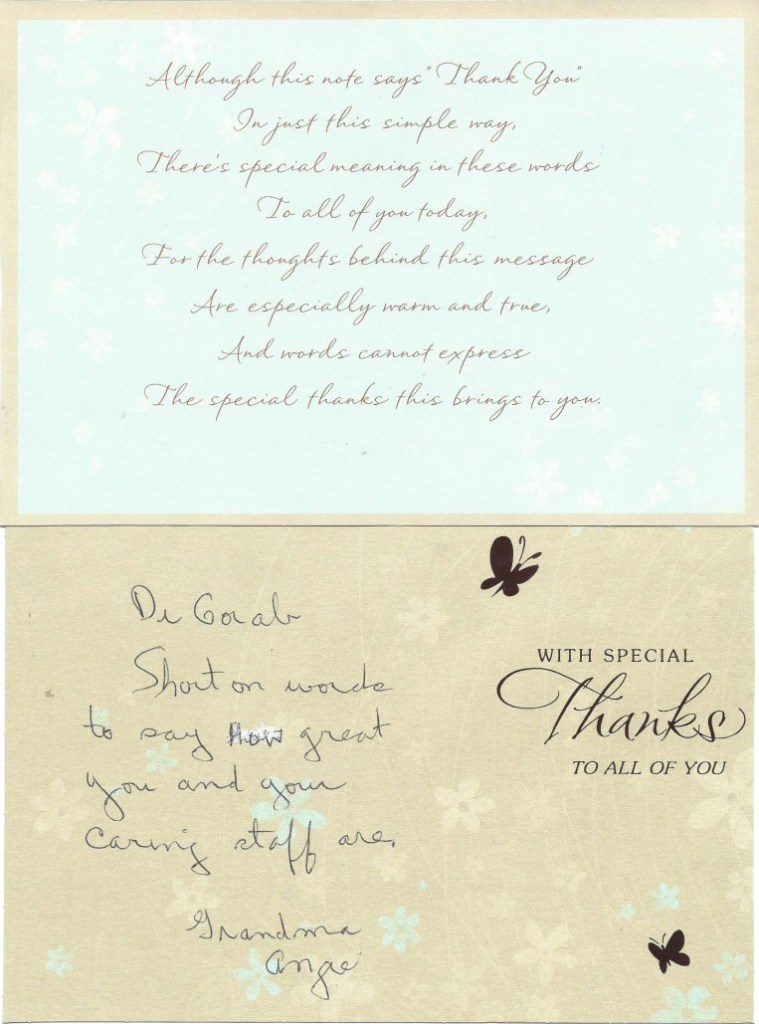 Although this note says "Thank You"
In just this simple way,
There's special meaning in these words
To all of you today,
For the thoughts behind this message
Are especially warm and true,
And words cannot express
The special thanks this brings to you.
Dr Gorab
Short on words
to say how great
you and your
caring staff are.
Grandma
Angie
WITH SPECIAL
Thanks
TO ALL OF YOU